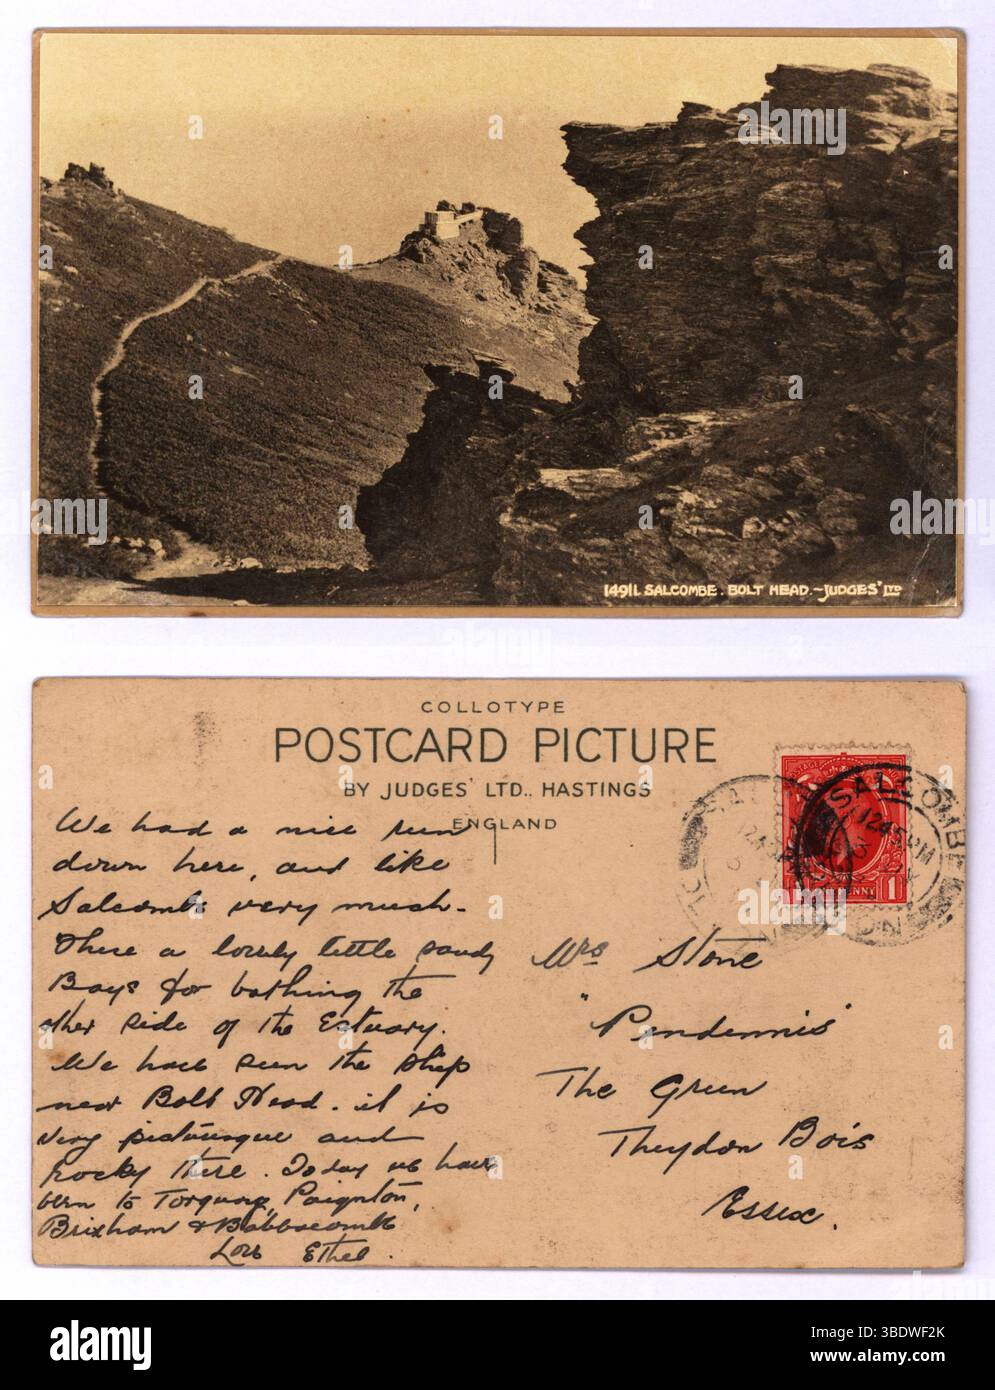 14911. SALCOMBE. BOLT HEAD. ~ JUDGES' LTD
COLLOTYPE
POSTCARD PICTURE
BY JUDGES' LTD., HASTINGS
ENGLAND
We had a nice run
down here, and like
Salcombe very much.
There a lovely little sandy
Bays for bathing the
other side of the Estuary.
We have seen the ship
near Bolt Head. it is
very picturesque and
rocky there. Today we have
been to Torquay, Paignton,
Brixham & Babbacombe
Love Ethel.
SALCOMBE
1245 PM
DEVON
POSTAGE
PENNY 1
Mrs Stone
"Pendennis"
The Green
Theydon Bois
Essex.
alamy
Image ID: 3BDWF2K
www.alamy.com